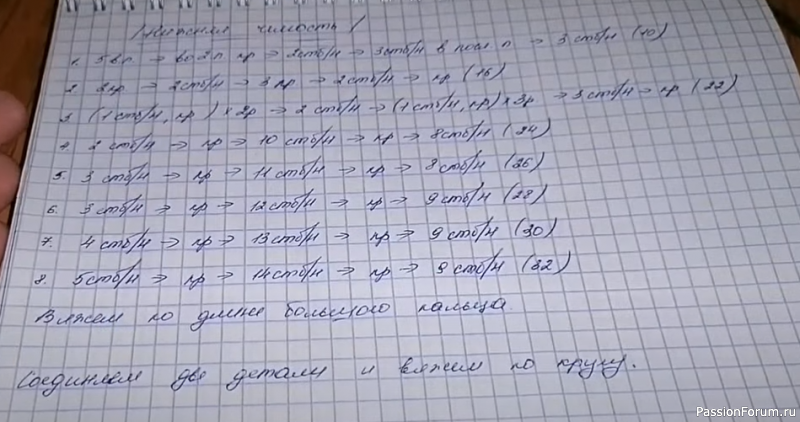 Нижняя челюсть
1. 5 вп → во 2 п пр → 2 стб/н → 3 стб/н в посл п → 3 стб/н (10)
2. 2 пр → 2 стб/н → 3 пр → 2 стб/н → пр (16)
3. (1 стб/н, пр) * 2р → 2 стб/н → (1 стб/н, пр) * 3р → 3 стб/н → пр (22)
4. 2 стб/н → пр → 10 стб/н → пр → 8 стб/н (24)
5. 3 стб/н → пр → 11 стб/н → пр → 8 стб/н (26)
6. 3 стб/н → пр → 12 стб/н → пр → 9 стб/н (28)
7. 4 стб/н → пр → 13 стб/н → пр → 9 стб/н (30)
8. 5 стб/н → пр → 14 стб/н → пр → 9 стб/н (32)
Вяжем по длине большого пальца.
Соединяем две детали и вяжем по кругу.
PassionForum.ru